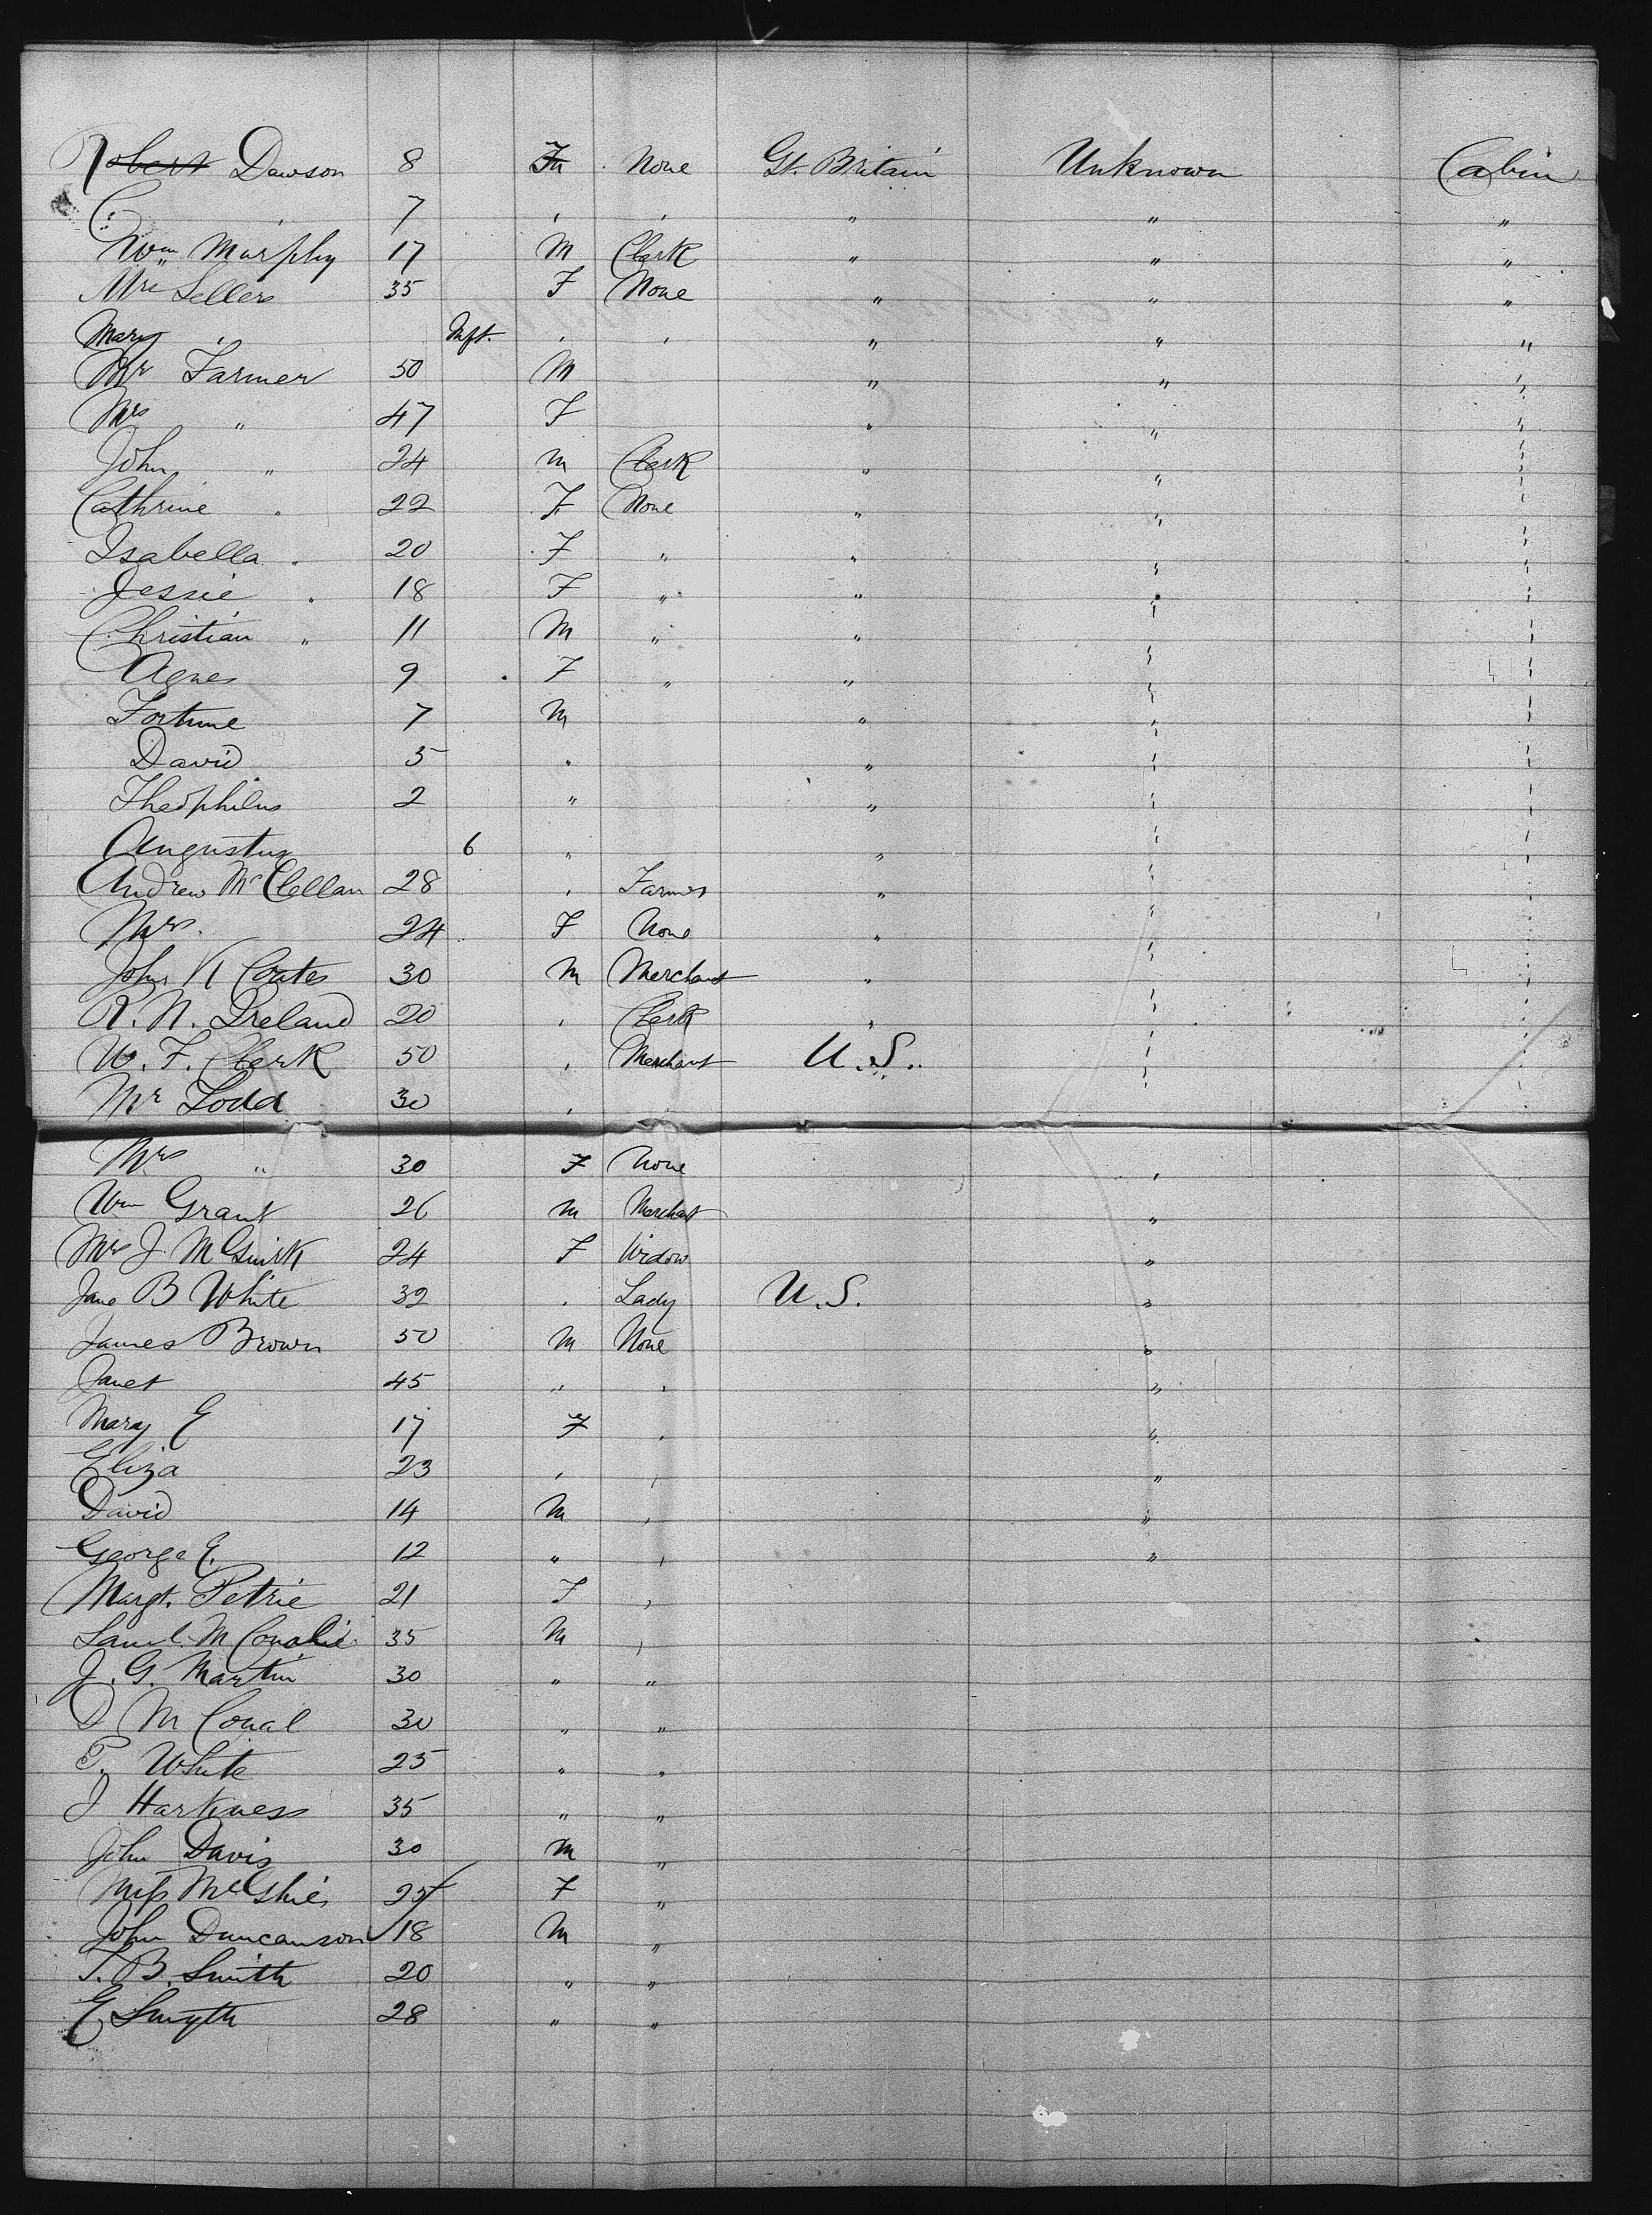 Robert Dawson 8 F None Gt. Britain Unknown Cabin
C. , 7 , , " " "
Wm Murphy 17 M Clerk " " "
Mrs Sellers 35 F None " " "
Mary , Inft. , , " " "
Mr Farmer 50 M " " "
Mrs " 47 F " " "
John " 24 M Clerk " " "
Cathrine " 22 F None " " "
Isabella " 20 F " " " "
Jessie " 18 F " " " "
Christian " 11 M " " " "
Agnes 9 F " " " "
Fortune 7 M " " "
David 5 " " " "
Theophilus 2 " " " "
Augustus 6 " " " "
Andrew McClellan 28 , Farmer " " "
Mrs. 24 F None " " "
John K Coates 30 M Merchant " " "
R. N. Ireland 20 , Clerk " " "
W. F. Clerk 50 , Merchant U.S. " "
Mr Todd 30 ,
Mrs " 30 F None "
Wm Grant 26 M Merchant "
Mrs J McGuirk 24 F Widow "
Jane B White 32 , Lady U.S. "
James Brown 50 M None "
Janet 45 " , "
Mary E 17 F , "
Eliza 23 , , "
David 14 M , "
George E. 12 " , "
Margt. Petrie 21 F ,
Saml. M 35 M ,
J. G. Martin 30 " "
D M Conal 30 " "
P. White 25 " "
J Harkness 35 " "
John Davis 30 M "
Miss McGhie 25 F "
John Duncanson 18 M "
T. B. Smith 20 " "
E Smyth 28 " "